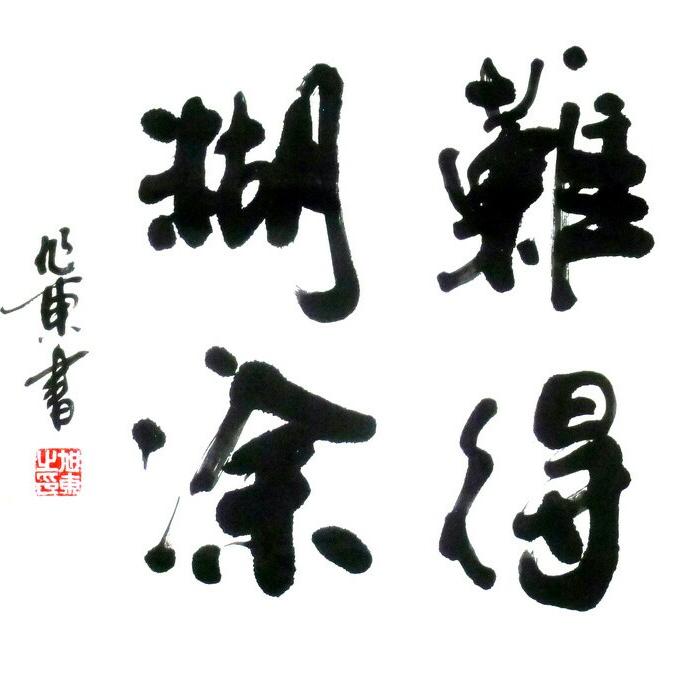 難得
糊涂
旭東書
旭東之印